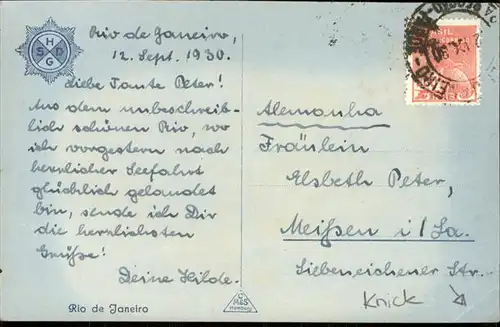 H
S D
G
Rio de Janeiro,
12. Sept. 1930.
Liebe Tante Peter!
Aus dem unbeschreib-
lich schönen Rio, wo
ich vorgestern nach
herrlicher Seefahrt
glücklich gelandet
bin, sende ich Dir
die herzlichsten
Grüße!
Deine Hilde.
Rio de Janeiro
BRASIL
Alemanha
Fräulein
Elsbeth Peter,
Meißen i/Sa.
Siebeneichener Str.
Knick
M&S
Hamburg